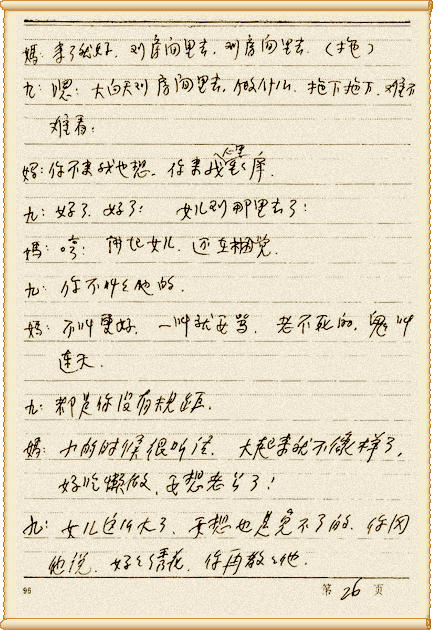 媽：来了就好，到房间里去，到房间里去。（拖）
九：嗯！大白天到房间里去，做什么，拖下拖下，难看
难看！
媽：你不来我也想。你来我心里慌。
九：好了，好了！女儿到那里去了！
媽：哼！讲起女儿，还在睏觉。
九：你不叫叫他的。
媽：不叫更好，一叫就要骂，老不死的，鬼叫
连天。
九：都是你没有规距。
媽：小的时候很听话，大起来就不像样了，
好吃懒做，要想老公了！
九：女儿这么大了，要想也是免不了的，你同
他说，好好绣花，你再教教他。
96
第 26 页